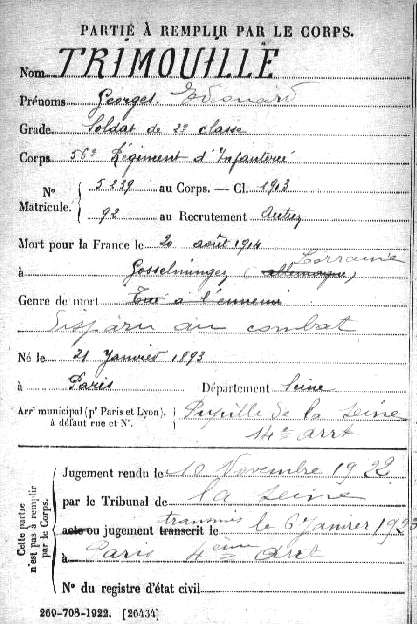 PARTIE À REMPLIR PAR LE CORPS.
Nom TRIMOUILLE
Prénoms Georges Edouard
Grade Soldat de 2e classe
Corps 56e Régiment d'Infanterie
N° Matricule. 5239 au Corps. — Cl. 1913
92 au Recrutement
Mort pour la France le 20 août 1914
à Gosselmingen (allemagne) Lorraine
Genre de mort Tué à l'ennemi
Disparu au combat
Né le 21 Janvier 1893
à Paris Département Seine
Arrt municipal (pr Paris et Lyon), à défaut rue et N°. Pupille de la Seine
14e arrt
Cette partie n'est pas à remplir par le Corps.
Jugement rendu le 10 Novembre 1922
par le Tribunal de la Seine
acte ou jugement transcrit transmis le 6 Janvier 1923
à Paris 4ème arrt
N° du registre d'état civil
269-708-1922. [26434]